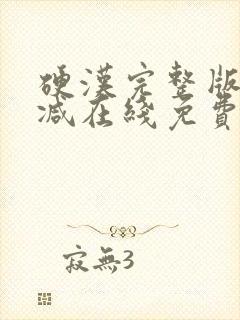 硬漢完整版
減在綫免費
寂無3